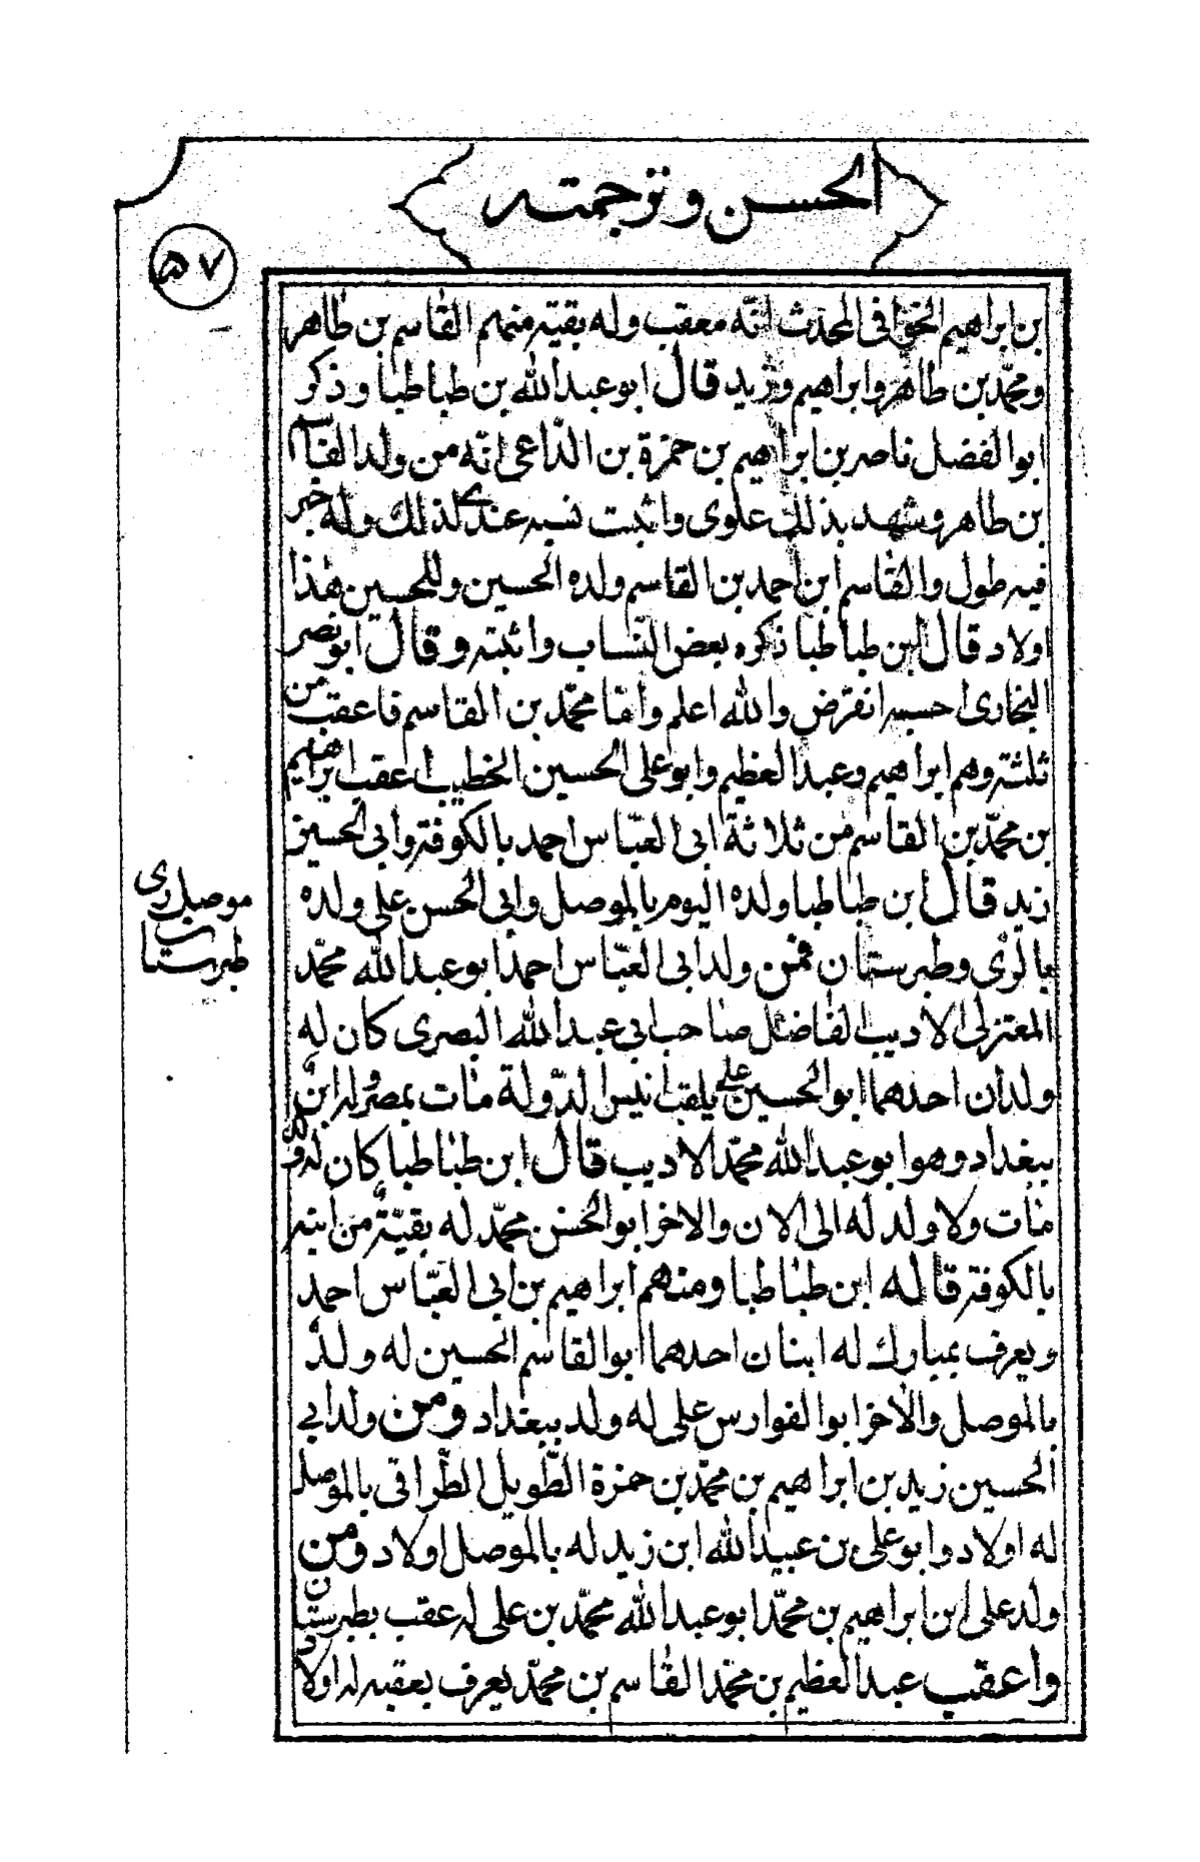 الحسن وترجمته
٥٧
بن ابراهيم المحدث انّه معقب وله بقيّة منهم القاسم بن طاهر
ومحمّد بن طاهر وابراهيم وزيد قال ابو عبد الله بن طباطبا وذكر
ابوالفضل ناصر بن ابراهيم بن حمزة بن الدّاعى انّه من ولد القاسم
بن طاهر وشهد بذلك علوى واثبت نسبه عندى لذلك وله خبر
فيه طول والقاسم ابن احمد بن القاسم ولده الحسين وللحسين هذا
اولاد قال ابن طباطبا ذكره بعض النسّاب واثبته وقال ابونصر
البخارى احسبه انقرض والله اعلم وامّا محمّد بن القاسم فاعقب من
ثلثة وهم ابراهيم وعبد العظيم وابوعلى الحسين الخطيب اعقب ابراهيم
بن محمّد بن القاسم من ثلاثة ابى العبّاس احمد بالكوفة وابى الحسين
زيد قال ابن طباطبا ولده اليوم بالموصل وابى الحسن على ولده
بالرّى وطبرستان فمن ولد ابى العبّاس احمد ابو عبد الله محمّد
المعتزلى الاديب الفاضل صاحب ابى عبد الله البصرى كان له
ولدان احدهما ابو الحسين على يلقب انيس الدّولة مات بمصر وله ابن
ببغداد وهو ابو عبد الله محمّد الاديب قال ابن طباطبا كان له ولد
مات ولا ولد له الى الان والاخر ابو الحسن محمّد له بقيّة من ابنه
بالكوفة قاله ابن طباطبا ومنهم ابراهيم بن ابى العبّاس احمد
ويعرف بمبارك له ابنان احدهما ابو القاسم الحسين له ولد
بالموصل والاخر ابو الفوارس على له ولد ببغداد ومن ولد ابى
الحسين زيد بن ابراهيم بن محمّد بن حمزة الطّويل الطّراقى بالموصل
له اولاد وابو على بن عبيد الله ابن زيد له بالموصل اولاد ومن
ولد على ابن ابراهيم بن محمّد ابو عبد الله محمّد بن على له عقب بطبرستان
واعقب عبد العظيم بن محمّد القاسم بن محمّد يعرف بعقبه له اولاد
موصل رى
طبرستان